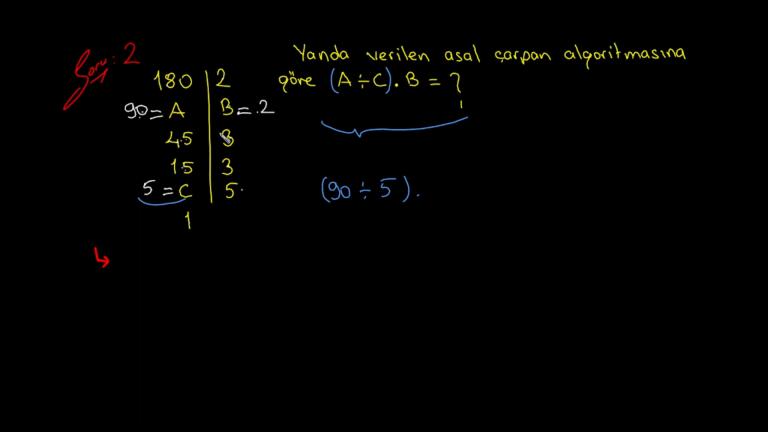 Soru: 2
Yanda verilen asal çarpan algoritmasına
göre (A ÷ C). B = ?
180 | 2
90 = A | B = 2
45 | 3
15 | 3
5 = C | 5
1
(90 ÷ 5).